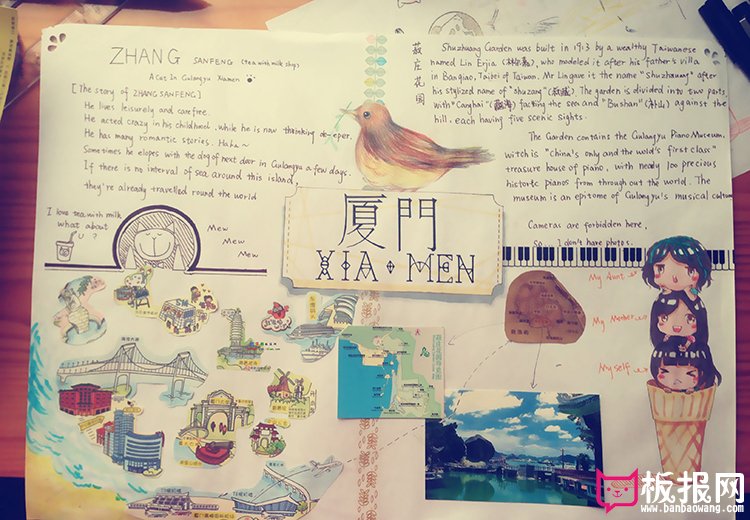 ZHANG SANFENG (tea with milk shop)
A Cat In Gulangyu Xiamen
[The story of ZHANGSANFENG]
He lives leisurely and carefree.
He acted crazy in his childhood, while he is now thinking deeper.
He has many romantic stories. Haha~
Sometimes he elopes with the dog of next door in Gulangyu a few days.
If there is no interval of sea around this island,
they're already travelled round the world
I love tea with milk
what about
U?
Mew
Mew
Mew
菽庄花园
Shuzhuang Garden was built in 1913 by a wealthy Taiwanese
named Lin Erjia (林尔嘉), who modeled it after his father's villa
in Banqiao, Taibei of Taiwan. Mr Lin gave it the name "Shuzhuang" after
his stylized name of "shuzang" (叔臧). The garden is divided into two parts
with "Canghai" (藏海) facing the sea and "Bushan" (补山) against the
hill, each having five scenic sights.
The Garden contains the Gulangyu Piano Museum,
witch is "China's only and the world's first class"
treasure house of piano, with nearly 100 precious
historic pianos from through out the world. The
museum is an epitome of Gulangyu's musical culture
Cameras are forbidden here,
So I don't have photos.
厦門
XIA·MEN
My Aunt
My Mother
Myself
鼓浪屿
海沧大桥
板报网
www.banbaowang.com